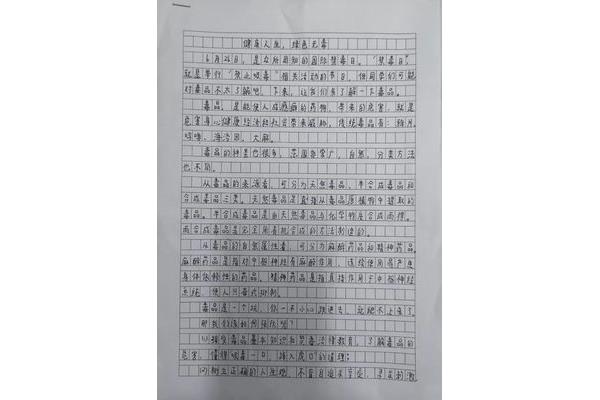 健康人生，绿色无毒
6月26日，是众所周知的国际禁毒日。"禁毒日"
就是举行"禁止吸毒"相关活动的节日，但同学们可能
对毒品不太了解吧，下来，让我们来了解一下毒品。
毒品，是能使人成瘾的药物，带来的危害，就是
危害身心健康经济给社会带来威胁，传统毒品有：鸦片、
吗啡、海洛因、大麻。
毒品的种类也很多，范围非常广，自然，分类方法
也不同。
从毒品的来源看，可分为天然毒品，半合成毒品和
合成毒品三类。天然毒品是直接从毒品原植物中提取的
毒品。半合成毒品是由天然毒品与化学物质合成而得。
而合成毒品是完全用有机合成的方法制造的。
从毒品的自然属性看，可分为麻醉药品和精神药品。
麻醉药品是指对中枢神经有麻醉作用，连续使用易产生
身体依赖性的药品。精神药品是指直接作用于中枢神经
系统，使人兴奋或抑制。
毒品是一个坑，你一不小心跳进去，就爬不上来了。
那我们该如何预防呢？
(1)接受毒品基本知识和禁毒法律教育，了解毒品的
危害，懂得吸毒一口，掉入虎口的道理；
(2)树立正确的人生观，不盲目追求享受，寻求刺激